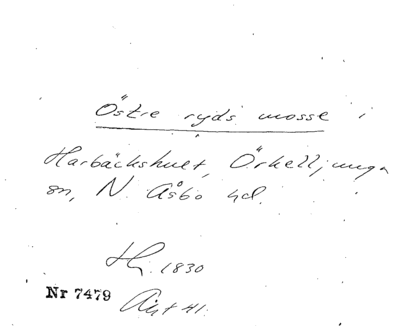 Östre ryds mosse i
Harbäckshult, Örkelljunga
sn, N. Åsbo hd.
Hj. 1830
Nr 7479